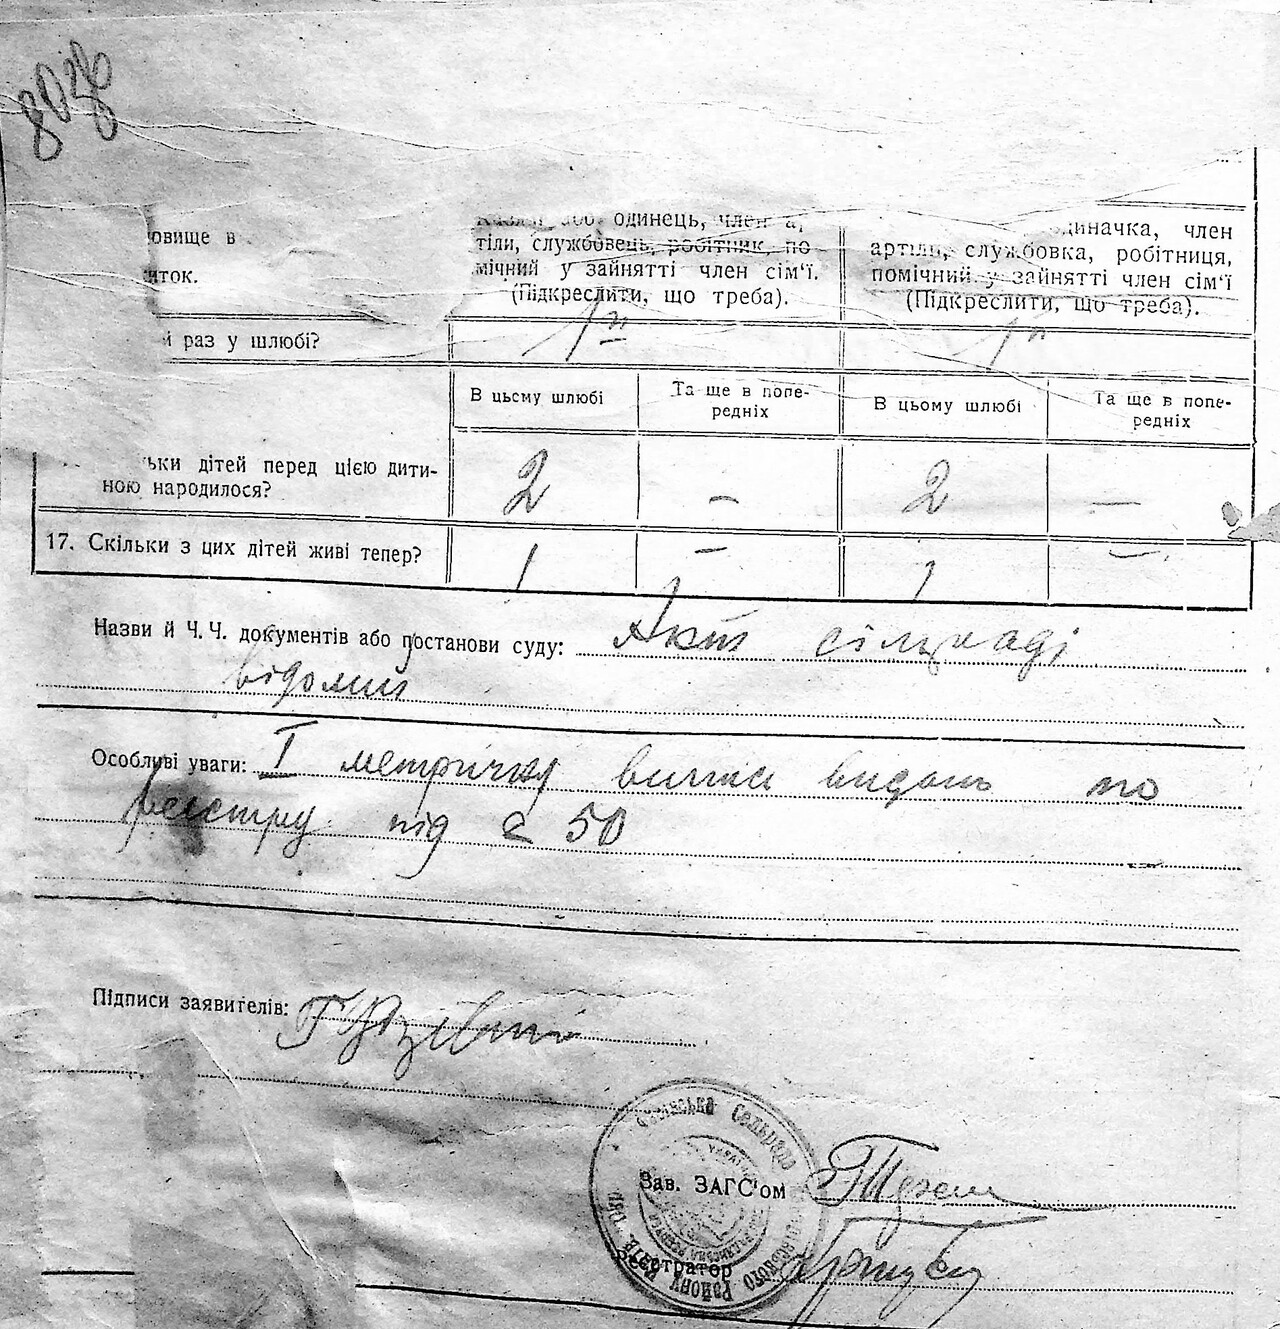 одинець, член
тіли, службовець, робітник, по
мічний у зайнятті член сім'ї.
(Підкреслити, що треба).
одиначка, член
артіли, службовка, робітниця,
помічний у зайнятті член сім'ї
(Підкреслити, що треба).
овище в
иток.
й раз у шлюбі?
1
1
В цьому шлюбі
Та ще в попе-
редніх
В цьому шлюбі
Та ще в попе-
редніх
ьки дітей перед цією дити-
ною народилося?
2
–
2
–
17. Скільки з цих дітей живі тепер?
1
–
1
–
Назви й Ч. Ч. документів або постанови суду: Акт сільради
відомий
Особливі уваги: І метричний видань по
реєстру під 50
Підписи заявителів:
Сельрада
Району
Зав. ЗАГС'ом
Реєстратор